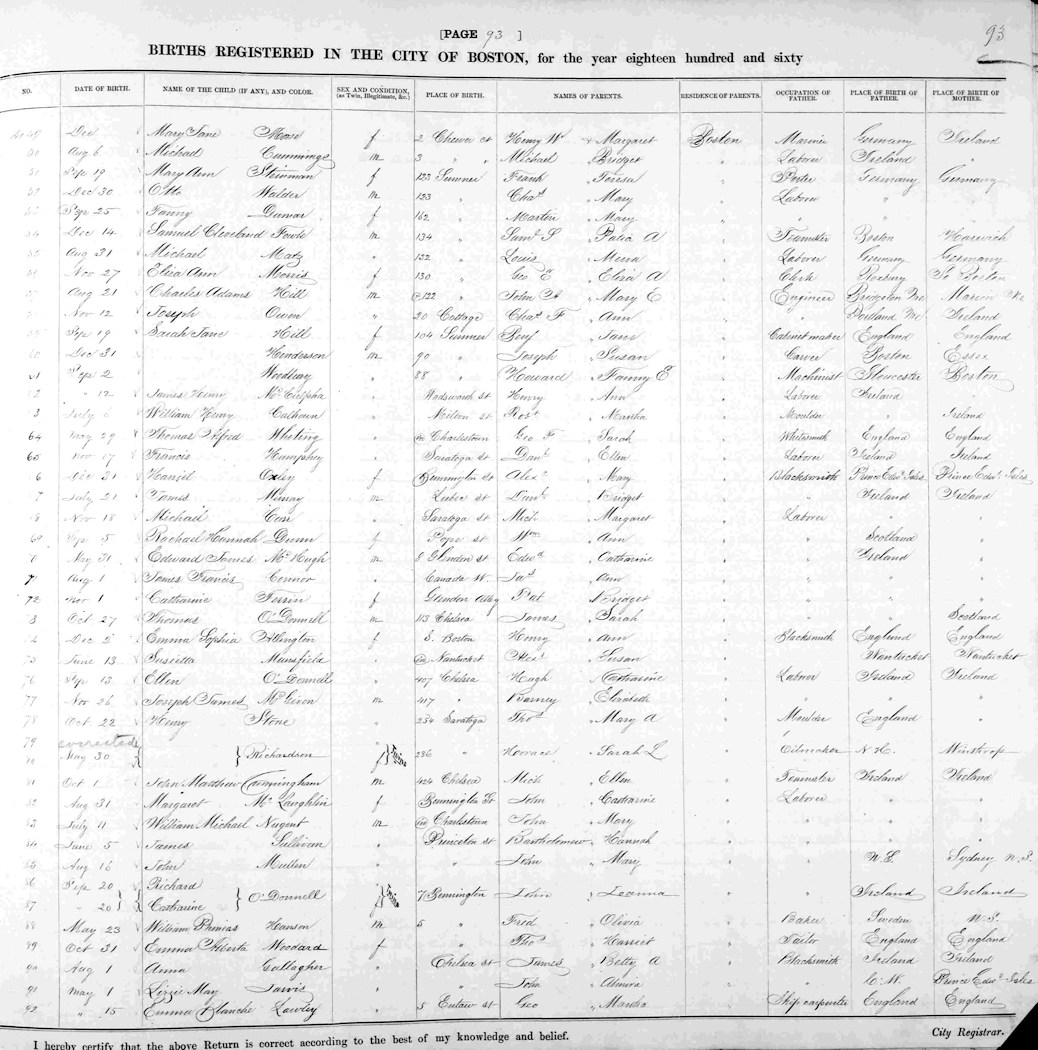 [PAGE 93 ]
93
BIRTHS REGISTERED IN THE CITY OF BOSTON, for the year eighteen hundred and sixty
NO. DATE OF BIRTH. NAME OF THE CHILD (IF ANY), AND COLOR. SEX AND CONDITION, (as Twin, Illegitimate, &c.) PLACE OF BIRTH. NAMES OF PARENTS. RESIDENCE OF PARENTS. OCCUPATION OF FATHER. PLACE OF BIRTH OF FATHER. PLACE OF BIRTH OF MOTHER.
Dec Mary Jane f 2 Henry W & Margaret Boston Germany Ireland
Aug 6 Michael Cummings m 3 " " Michael " Bridget " Laborer Ireland "
Sep 19 Mary Ann f 123 Sumner Frank " Teresa " Porter Germany Germany
Dec 30 Otto Walder m 133 " Chas " Mary " Laborer " "
Sep 25 Fanny f 162 " Martin " Mary " " " "
Dec 14 Samuel Cleveland Fowle m 134 " Saml S " A " Teamster Boston Harwich
Aug 31 Michael Matz " 132 " Louis " " Laborer Germany Germany
Nov 27 Eliza Ann Morris f 130 " Geo " Eliza A " Clerk Roxbury
Aug 21 Charles Adams Hill m 122 " John " Mary E " Engineer Bridgton Me
Nov 12 Joseph Owen " 20 Cottage Chas F " Ann " " Portland Me Ireland
Sep 19 Sarah Jane Hill f 104 Sumner Benj " Jane " Cabinet maker England England
60 Dec 31 Henderson m 90 " Joseph " Susan " Carver Boston Essex
61 Sep 2 Woodbury " 88 " Howard " Fanny E " Machinist Gloucester Boston
" 12 James Henry " Wadsworth st Henry " Ann " Laborer Ireland "
3 July 6 William Henry Calhoun " st Robt " Martha " Moulder " Ireland
64 May 29 Thomas Alfred Whiting " Charlestown Geo F " Sarah " Whitesmith England England
65 Nov 17 Francis Humphrey " Saratoga st Danl " Ellen " Laborer Ireland Ireland
6 Dec 31 Oxley f Bennington st Alex " Mary " Blacksmith Prince Edwd Isles Prince Edwd Isles
7 July 21 James Murray m Lubec st Danl " Bridget " " Ireland Ireland
Nov 18 Michael " Saratoga st Mich " Margaret " Laborer " "
69 Sep 5 Rachael Hannah Dunn f Pope st Wm " Ann " " Scotland "
May 31 Edward James McHugh m 8 Glendon st Edwd " Catharine " " Ireland "
71 Aug 1 James Francis Connor " Jas " Ann " " " "
72 Nov 1 Catharine f Glendon Pat " Bridget " " " "
3 Oct 27 Thomas O'Donnell m 113 Chelsea James " Sarah " " " Scotland
Dec 5 Emma Sophia f S. Boston Henry " Ann " Blacksmith England England
75 June 13 Susietta Mansfield " Nantucket Alex " Susan " Nantucket Nantucket
76 Sep 13 Ellen O'Donnell " 407 Chelsea Hugh " Catharine " Laborer Ireland Ireland
77 Nov 26 Joseph James m 417 " Barney " Elizabeth " " " "
78 Oct 22 Henry Stone " 234 Saratoga Thos " Mary A " Moulder England "
79
May 30 } } Richardson f } Twins 236 " Horace " Sarah L " Oilmaker N. H. Winthrop
81 Oct 1 John Matthew Cunningham m 424 Chelsea Mich " Ellen " Teamster Ireland Ireland
82 Aug 31 Margaret McLaughlin f Bennington St John " Catharine " Laborer " "
83 July 11 William Michael Nugent m Charlestown John " Mary " " " "
84 June 5 James Sullivan " Princeton st Bartholomew " Hannah " " " "
85 Aug 16 John Mullen " " John " Mary " " Sydney N.S.
86 Sep 20 Richard
87 " 20 } { Catharine } O'Donnell } Twins 7 Bennington John " Leonna " " Ireland Ireland
88 May 23 William Hanson m 5 " Fred " Olivia " Baker Sweden N.S.
89 Oct 31 Emma Alberta Woodard f " Thos " Harriet " Tailor England England
90 Aug 1 Anna Gallagher " Chelsea st James " Betty A " Blacksmith Ireland Ireland
91 May 1 Lizzie May Jarvis " " John " Almira " " Prince Edwd Isles
92 " 15 Emma Blanche Lawley " 5 Eutaw st Geo " Martha " Ship carpenter England England
I hereby certify that the above Return is correct according to the best of my knowledge and belief.
City Registrar.